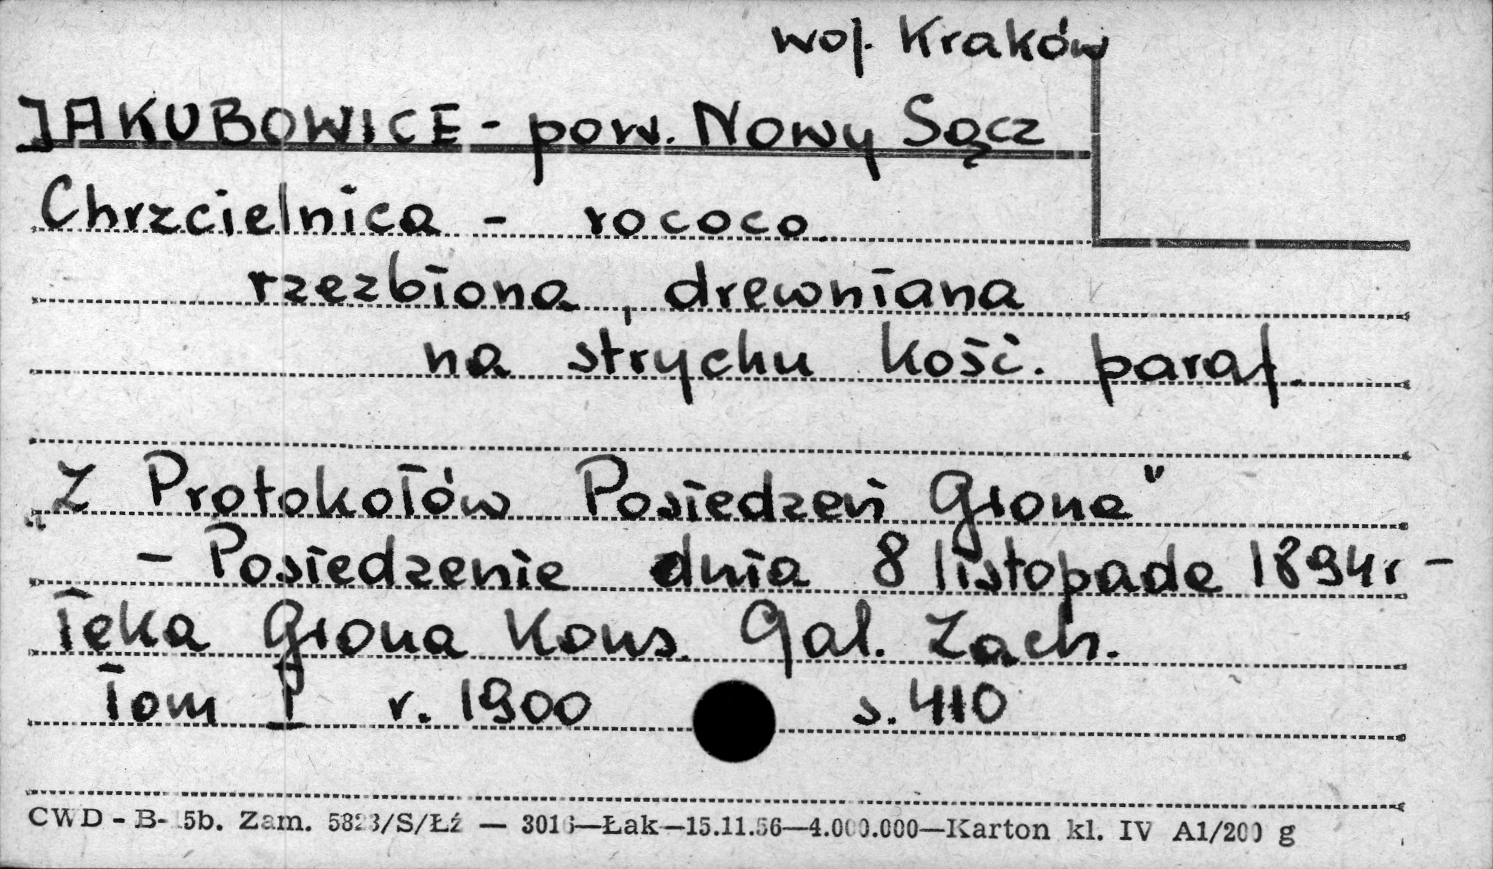 woj. Kraków
JAKUBOWICE - pow. Nowy Sącz
Chrzcielnica - rococo
rzezbiona, drewniana
na strychu kość. paraf.
„Z Protokołów Posiedzeń Grona"
- Posiedzenie dnia 8 listopada 1894r -
Teka Grona Kons. Gal. Zach.
Tom I r. 1900 s. 410
CWD - B- 5b. Zam. 5823/S/Łź — 3016—Łak—15.11.56—4.000.000—Karton kl. IV A1/200 g